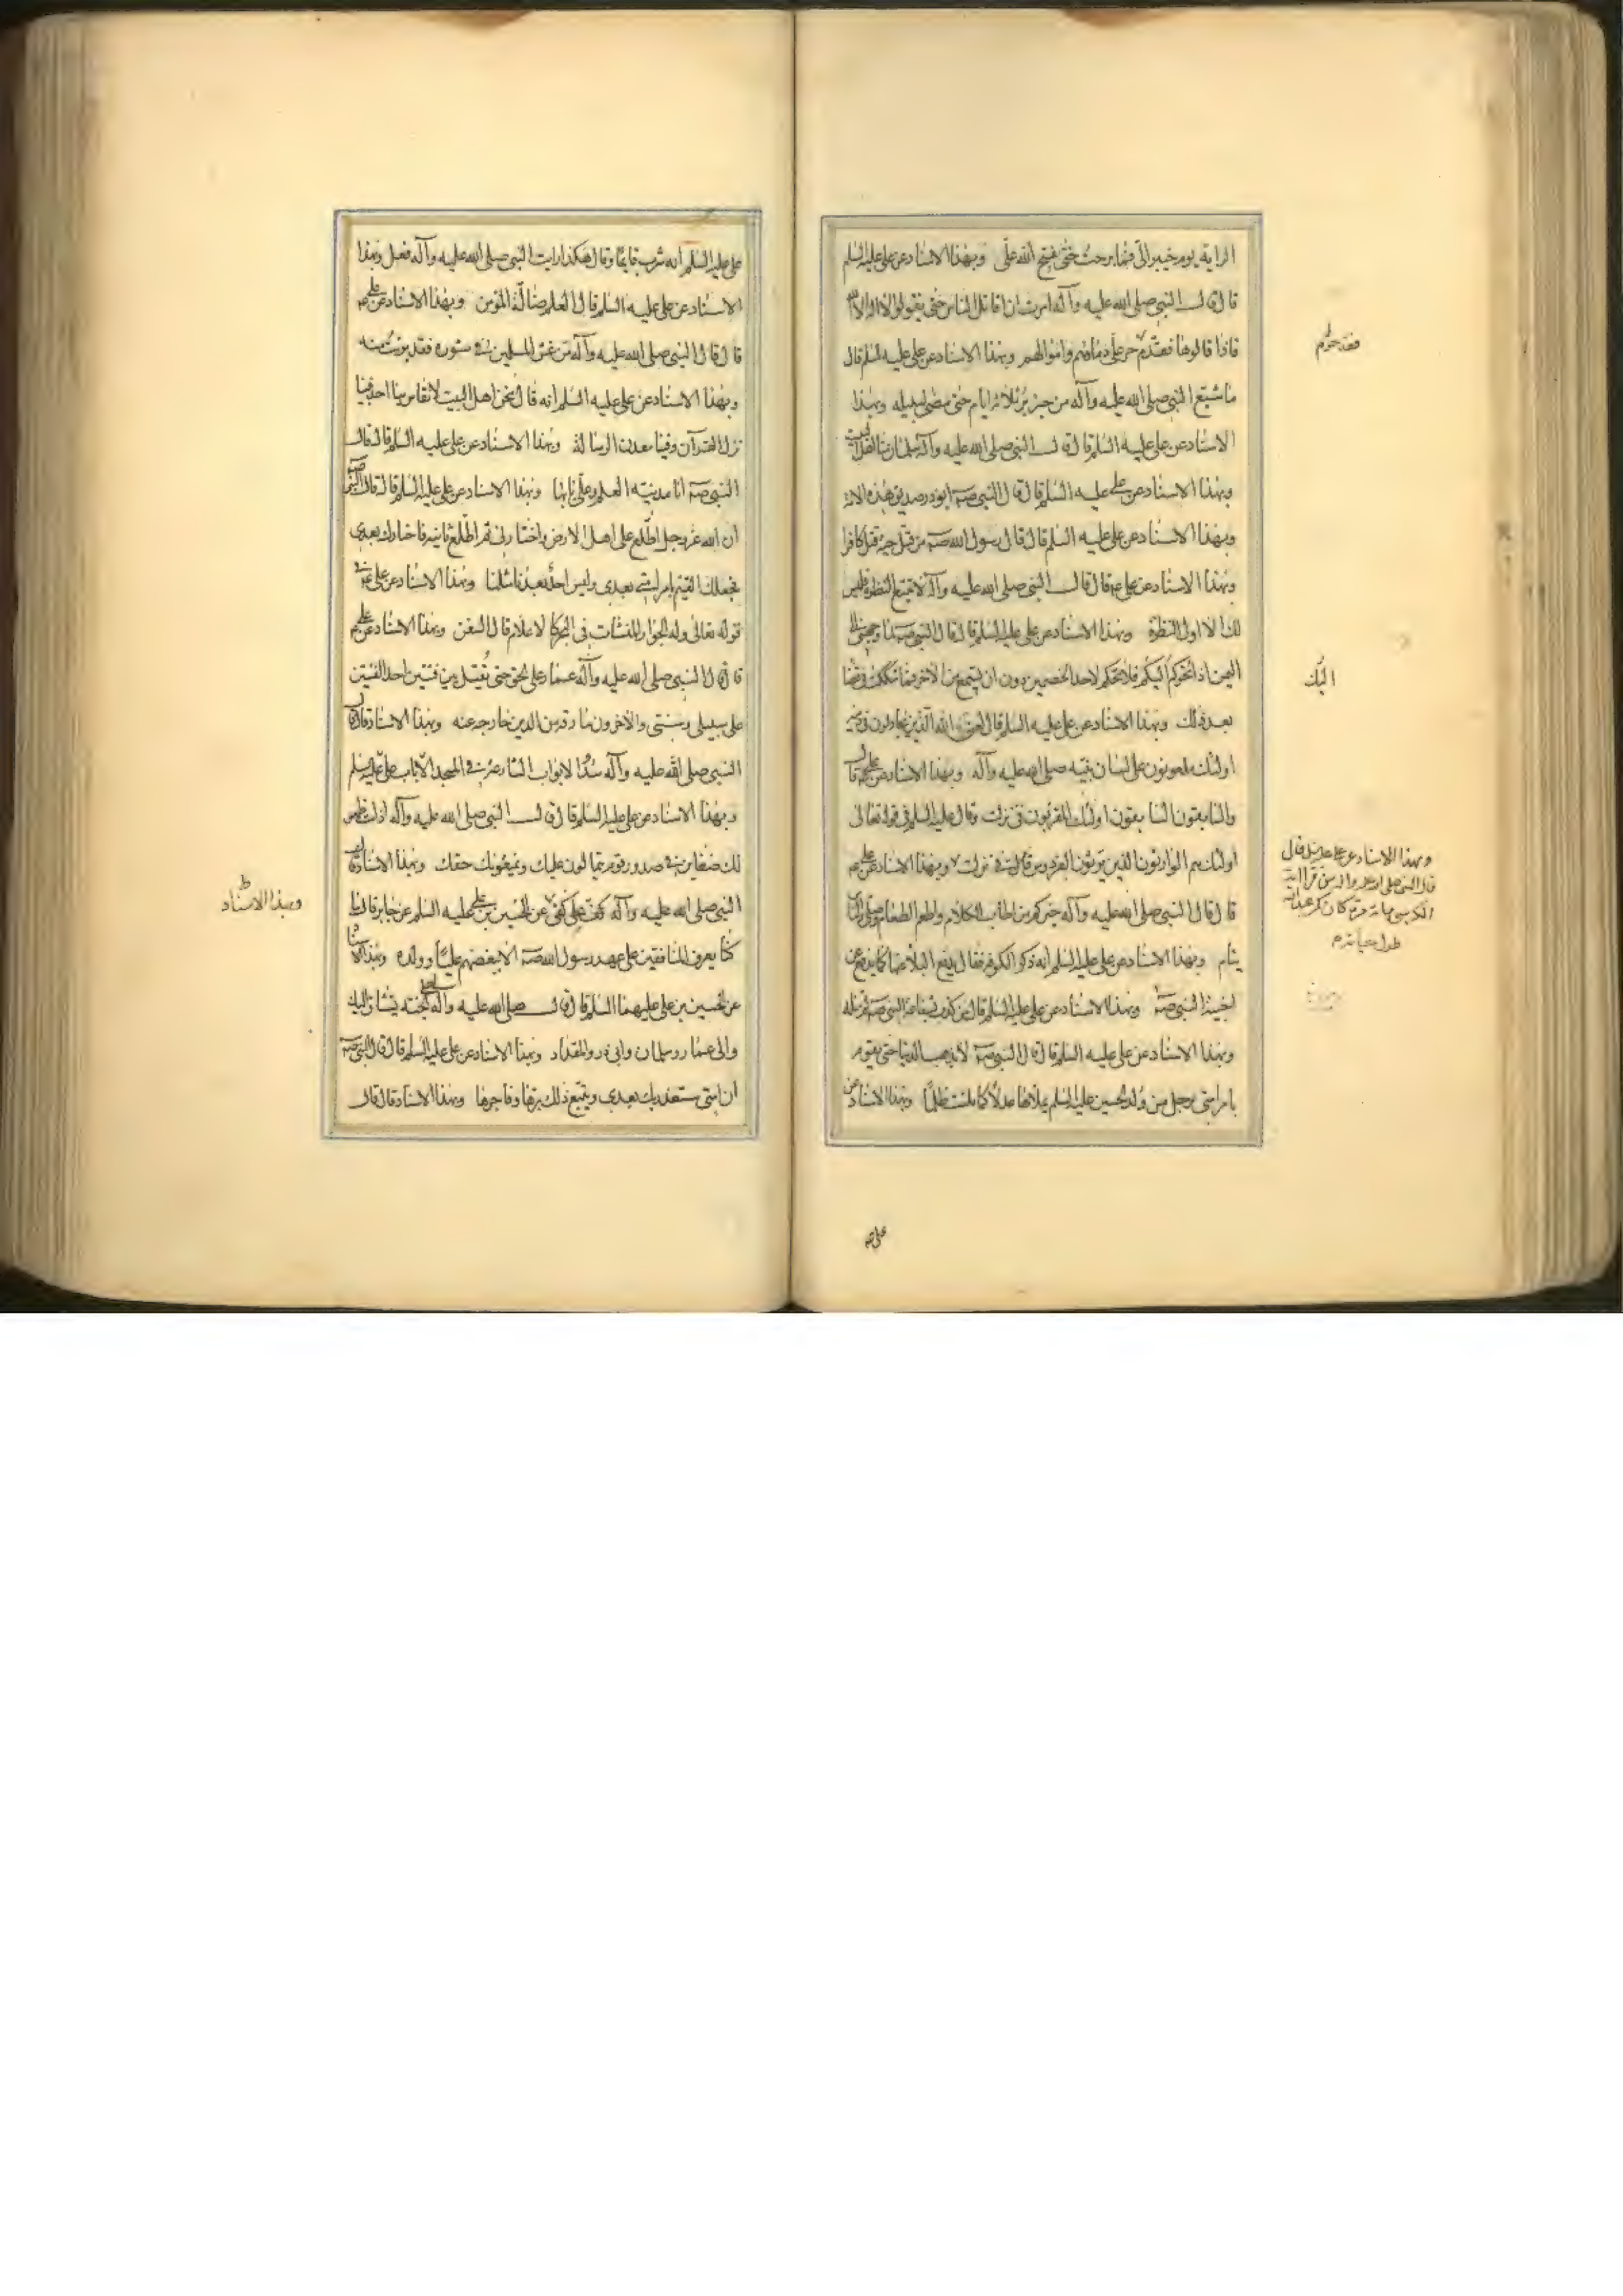 الراية يوم خيبر الىّ فما برحت حتى فتح الله علىّ وبهذا الاسناد عن على عليه السلم
قال قال النبى صلى الله عليه وآله امرت ان اقاتل الناس حتى يقولوا لا اله الا الله
فاذا قالوها فقد حرم على دماؤهم واموالهم وبهذا الاسناد عن على عليه السلم قال
ما شبع النبى صلى الله عليه وآله من خبز بر ثلاثة ايام حتى مضى لسبيله وبهذا
الاسناد عن على عليه السلم قال قال النبى صلى الله عليه وآله سلمان منا اهل البيت
وبهذا الاسناد عن على عليه السلم قال قال النبى صه ابوذر صديق هذه الامة
وبهذا الاسناد عن على عليه السلم قال قال رسول الله صه من قتل حية قتل كافرا
وبهذا الاسناد عن على ع قال قال النبى صلى الله عليه وآله لا تتبع النظرة فليس
لك الا اول النظرة وبهذا الاسناد عن على عليه السلم قال قال النبى صه وجهنى الى
اليمن اذا تحوكم اليكم فلا تحكم لاحد الخصمين دون ان تسمع من الاخر فما شككت فى قضا
بعد ذلك وبهذا الاسناد عن على عليه السلم قال لعن الله الذين يجادلون فى دينه
اولئك ملعونون على لسان نبيه صلى الله عليه وآله وبهذا الاسناد عن على ع قال
والسابقون السابقون اولئك المقربون فى نزلت وقال عليه السلم فى قوله تعالى
اولئك هم الوارثون الذين يرثون الفردوس قال فى نزلت وبهذا الاسناد عن على ع
قال قال النبى صلى الله عليه وآله خيركم من اطاب الكلام واطعم الطعام وصلى والناس
نيام وبهذا الاسناد عن على عليه السلم انه ذكر الكوفة فقال يدفع البلاء عنها كما يدفع عن
اخبية النبى صه وبهذا الاسناد عن على عليه السلم قال من كذب بشفاعة النبى صه لم تنله
وبهذا الاسناد عن على عليه السلم قال قال النبى صه لا تذهب الدنيا حتى يقوم
بامر امتى رجل من ولد الحسين عليه السلم يملاها عدلا كما ملئت ظلما وبهذا الاسناد عن
فقد حرم
اليك
وبهذا الاسناد عن على عليه السلم قال
قال النبى صلى الله عليه واله من قرا اية
الكرسى مائة مرة كان كمن عبد الله
طول حياته
على عليه
على عليه السلم انه شرب قايما وقال هكذا رايت النبى صلى الله عليه وآله فعل وبهذا
الاسناد عن على عليه السلم قال العلم ضالة المؤمن وبهذا الاسناد عن على ع
قال قال النبى صلى الله عليه وآله من غش المسلمين فى مشورة فقد برئت منه
وبهذا الاسناد عن على عليه السلم انه قال نحن اهل البيت لا يقاس بنا احد فينا
نزل القرآن وفينا معدن الرسالة وبهذا الاسناد عن على عليه السلم قال قال
النبى صه انا مدينة العلم وعلى بابها وبهذا الاسناد عن على عليه السلم قال قال النبى صه
ان الله عز وجل اطلع على اهل الارض فاختارنى ثم اطلع ثانية فاختارك بعدى
فجعلك القيم بامر امتى بعدى وليس احد بعدنا مثلنا وبهذا الاسناد عن على ع فى
قوله تعالى وله الجوار المنشات فى البحر كالاعلام قال السفن وبهذا الاسناد عن على ع
قال قال النبى صلى الله عليه وآله عمار على الحق حتى يقتل بين فئتين احد الفئتين
على سبيلى وسنتى والاخرون مارقة من الدين خارجة عنه وبهذا الاسناد قال قال
النبى صلى الله عليه وآله سدوا الابواب الشارعة فى المسجد الا باب على عليه السلم
وبهذا الاسناد عن على عليه السلم قال قال النبى صلى الله عليه وآله اذا مت ظهرت
لك ضغاين فى صدور قوم يتمالون عليك ويمنعونك حقك وبهذا الاسناد قال قال
النبى صلى الله عليه وآله كف على كفى عن الحسين بن على عليه السلم عن جابر قال ما
كنا يعرف المنافقين على عهد رسول الله صه الا ببغضهم عليا وولده وبهذا الاسناد
عن الحسين بن على عليهما السلم قال قال صلى الله عليه وآله الجنة تشتاق اليك
والى عمار وسلمان وابى ذر والمقداد وبهذا الاسناد عن على عليه السلم قال قال النبى صه
ان امتى ستغدر بك بعدى ويتبع ذلك برها وفاجرها وبهذا الاسناد قال قال
وبهذا الاسناد